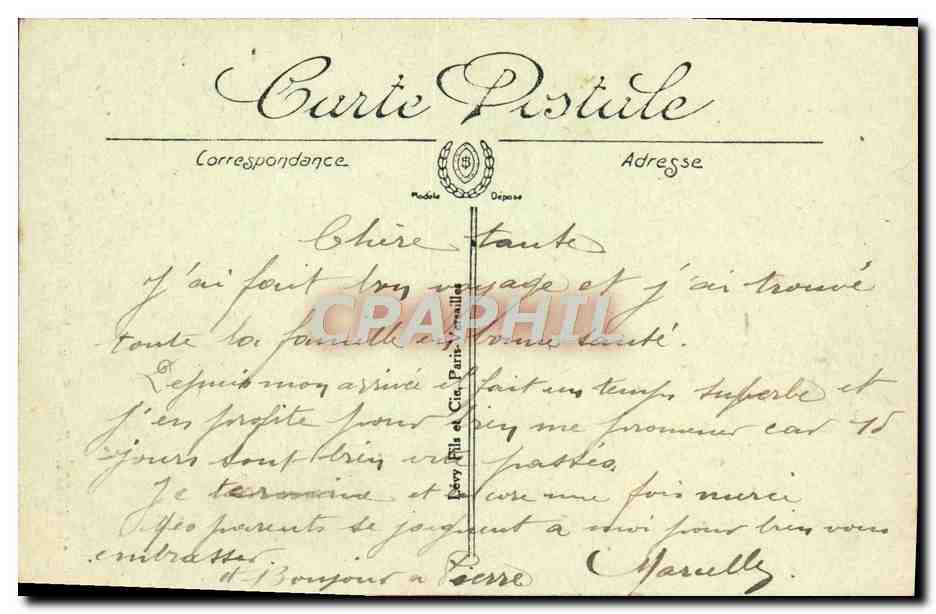 Carte Postale
Correspondance
Adresse
Modèle Déposé
Chère tante
J'ai fait bon voyage et j'ai trouvé
toute la famille en bonne santé.
Depuis mon arrivée il fait un temps superbe et
j'en profite pour bien me promener car 15
jours sont bien vite passés.
Je termine et encore une fois merci
Mes parents se joignent a moi pour bien vous
embrasser.
Bonjour a Pierre
Marcelle
Lévy Fils et Cie, Paris-Versailles
CPAPHIL